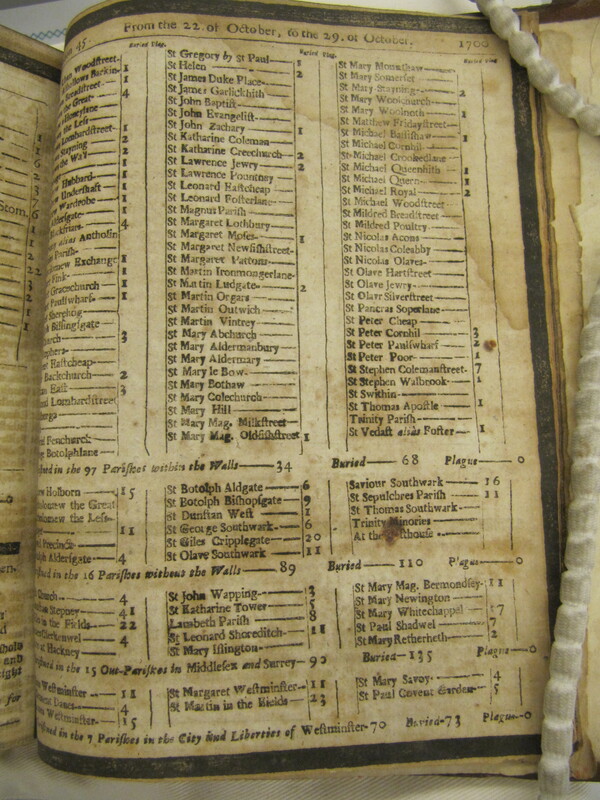 45 From the 22. of October, to the 29. of October. 1700
Buried Plag.
Buried Plag.
Buried Plag.
Woodstreet- 1
Barkin- 1
Breadstreet- 1
the Great 4
Honeylane
the Less
Lombardstreet 1
Stayning 2
the Wall 2
1
Hubbard 1
Undershaft 1
Wardrobe 1
Aldersgate 4
Blackfriars
alias Antholin
Parish
Exchange 1
Fink 1
Gracechurch 1
Paulswharf 1
Sherehog
Billingsgate
3
Eastcheap
Backchurch 2
East 3
Lombardstreet
Fenchurch
Botolphlane
St Gregory by St Paul 1
St Helen 2
St James Duke Place
St James Garlickhith
St John Baptist
St John Evangelist
St John Zachary 1
St Katharine Coleman
St Katharine Creechurch 2
St Lawrence Jewry 2
St Lawrence Pountney
St Leonard Eastcheap
St Leonard Fosterlane
St Magnus Parish
St Margaret Lothbury
St Margaret Moses 1
St Margaret Newfishstreet
St Margaret Pattons
St Martin Ironmongerlane
St Martin Ludgate 2
St Martin Orgars
St Martin Outwich
St Martin Vintrey
St Mary Abchurch
St Mary Aldermanbury
St Mary Aldermary
St Mary le Bow
St Mary Bothaw
St Mary Colechurch
St Mary Hill
St Mary Mag. Milkstreet
St Mary Mag. Oldfishstreet 1
St Mary Mounthaw
St Mary Somerset
St Mary Stayning 2
St Mary Woolchurch
St Mary Woolnoth 1
St Matthew Fridaystreet
St Michael Bassishaw 1
St Michael Cornhil
St Michael Crookedlane
St Michael Queenhith 1
St Michael Quern 1
St Michael Royal 2
St Michael Woodstreet
St Mildred Breadstreet
St Mildred Poultry
St Nicolas Acons
St Nicolas Coleabby
St Nicolas Olaves
St Olave Hartstreet
St Olave Jewry
St Olave Silverstreet
St Pancras Soperlane
St Peter Cheap
St Peter Cornhil 3
St Peter Paulswharf 2
St Peter Poor 1
St Stephen Colemanstreet 7
St Stephen Walbrook 1
St Swithin
St Thomas Apostle 1
Trinity Parish
St Vedast alias Foster 1
in the 97 Parishes within the Walls 34 Buried 68 Plague 0
Holborn 15
the Great
the Less
11
Precinct
Aldersgate 4
St Botolph Aldgate 6
St Botolph Bishopsgate 9
St Dunstan West 1
St George Southwark 6
St Giles Cripplegate 20
St Olave Southwark 11
Saviour Southwark 16
St Sepulchres Parish 11
St Thomas Southwark
Trinity Minories
At the
in the 16 Parishes without the Walls 89 Buried 110 Plague 0
Church 4
Stepney 41
in the Fields 22
Clerkenwel 4
at Hackney
St John Wapping 3
St Katharine Tower 5
Lambeth Parish 8
St Leonard Shoreditch 11
St Mary Islington
St Mary Mag. Bermondsey 11
St Mary Newington
St Mary Whitechappel 17
St Paul Shadwel 7
St Mary Retherheth 2
in the 15 Out-Parishes in Middlesex and Surrey Buried 135 Plague 0
Westminster 11
4
Westminster 15
St Margaret Westminster 11
St Martin in the Fields 23
St Mary Savoy 4
St Paul Covent Garden 5
in the 7 Parishes in the City and Liberties of Westminster 70 Buried 73 Plague 0